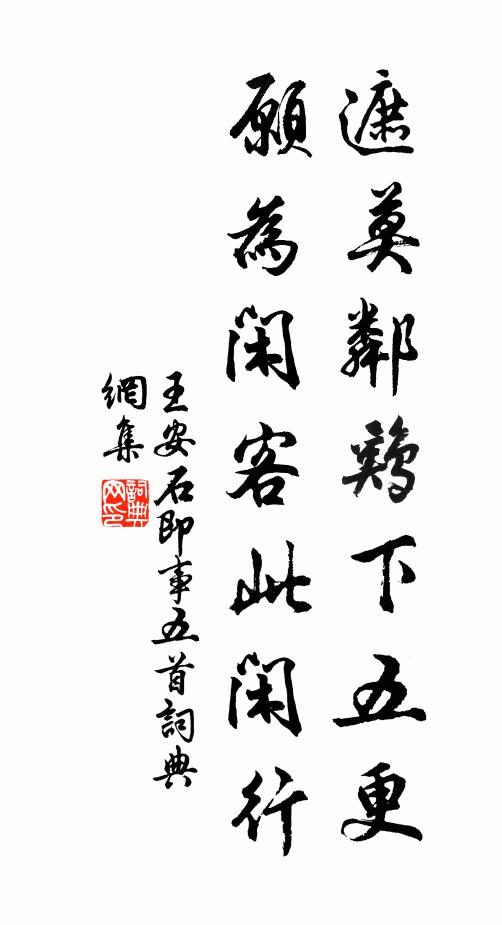 遮莫鄰鷄下五更
願為閑客此閑行
王安石即事五首詞典
網集
詞典
网印